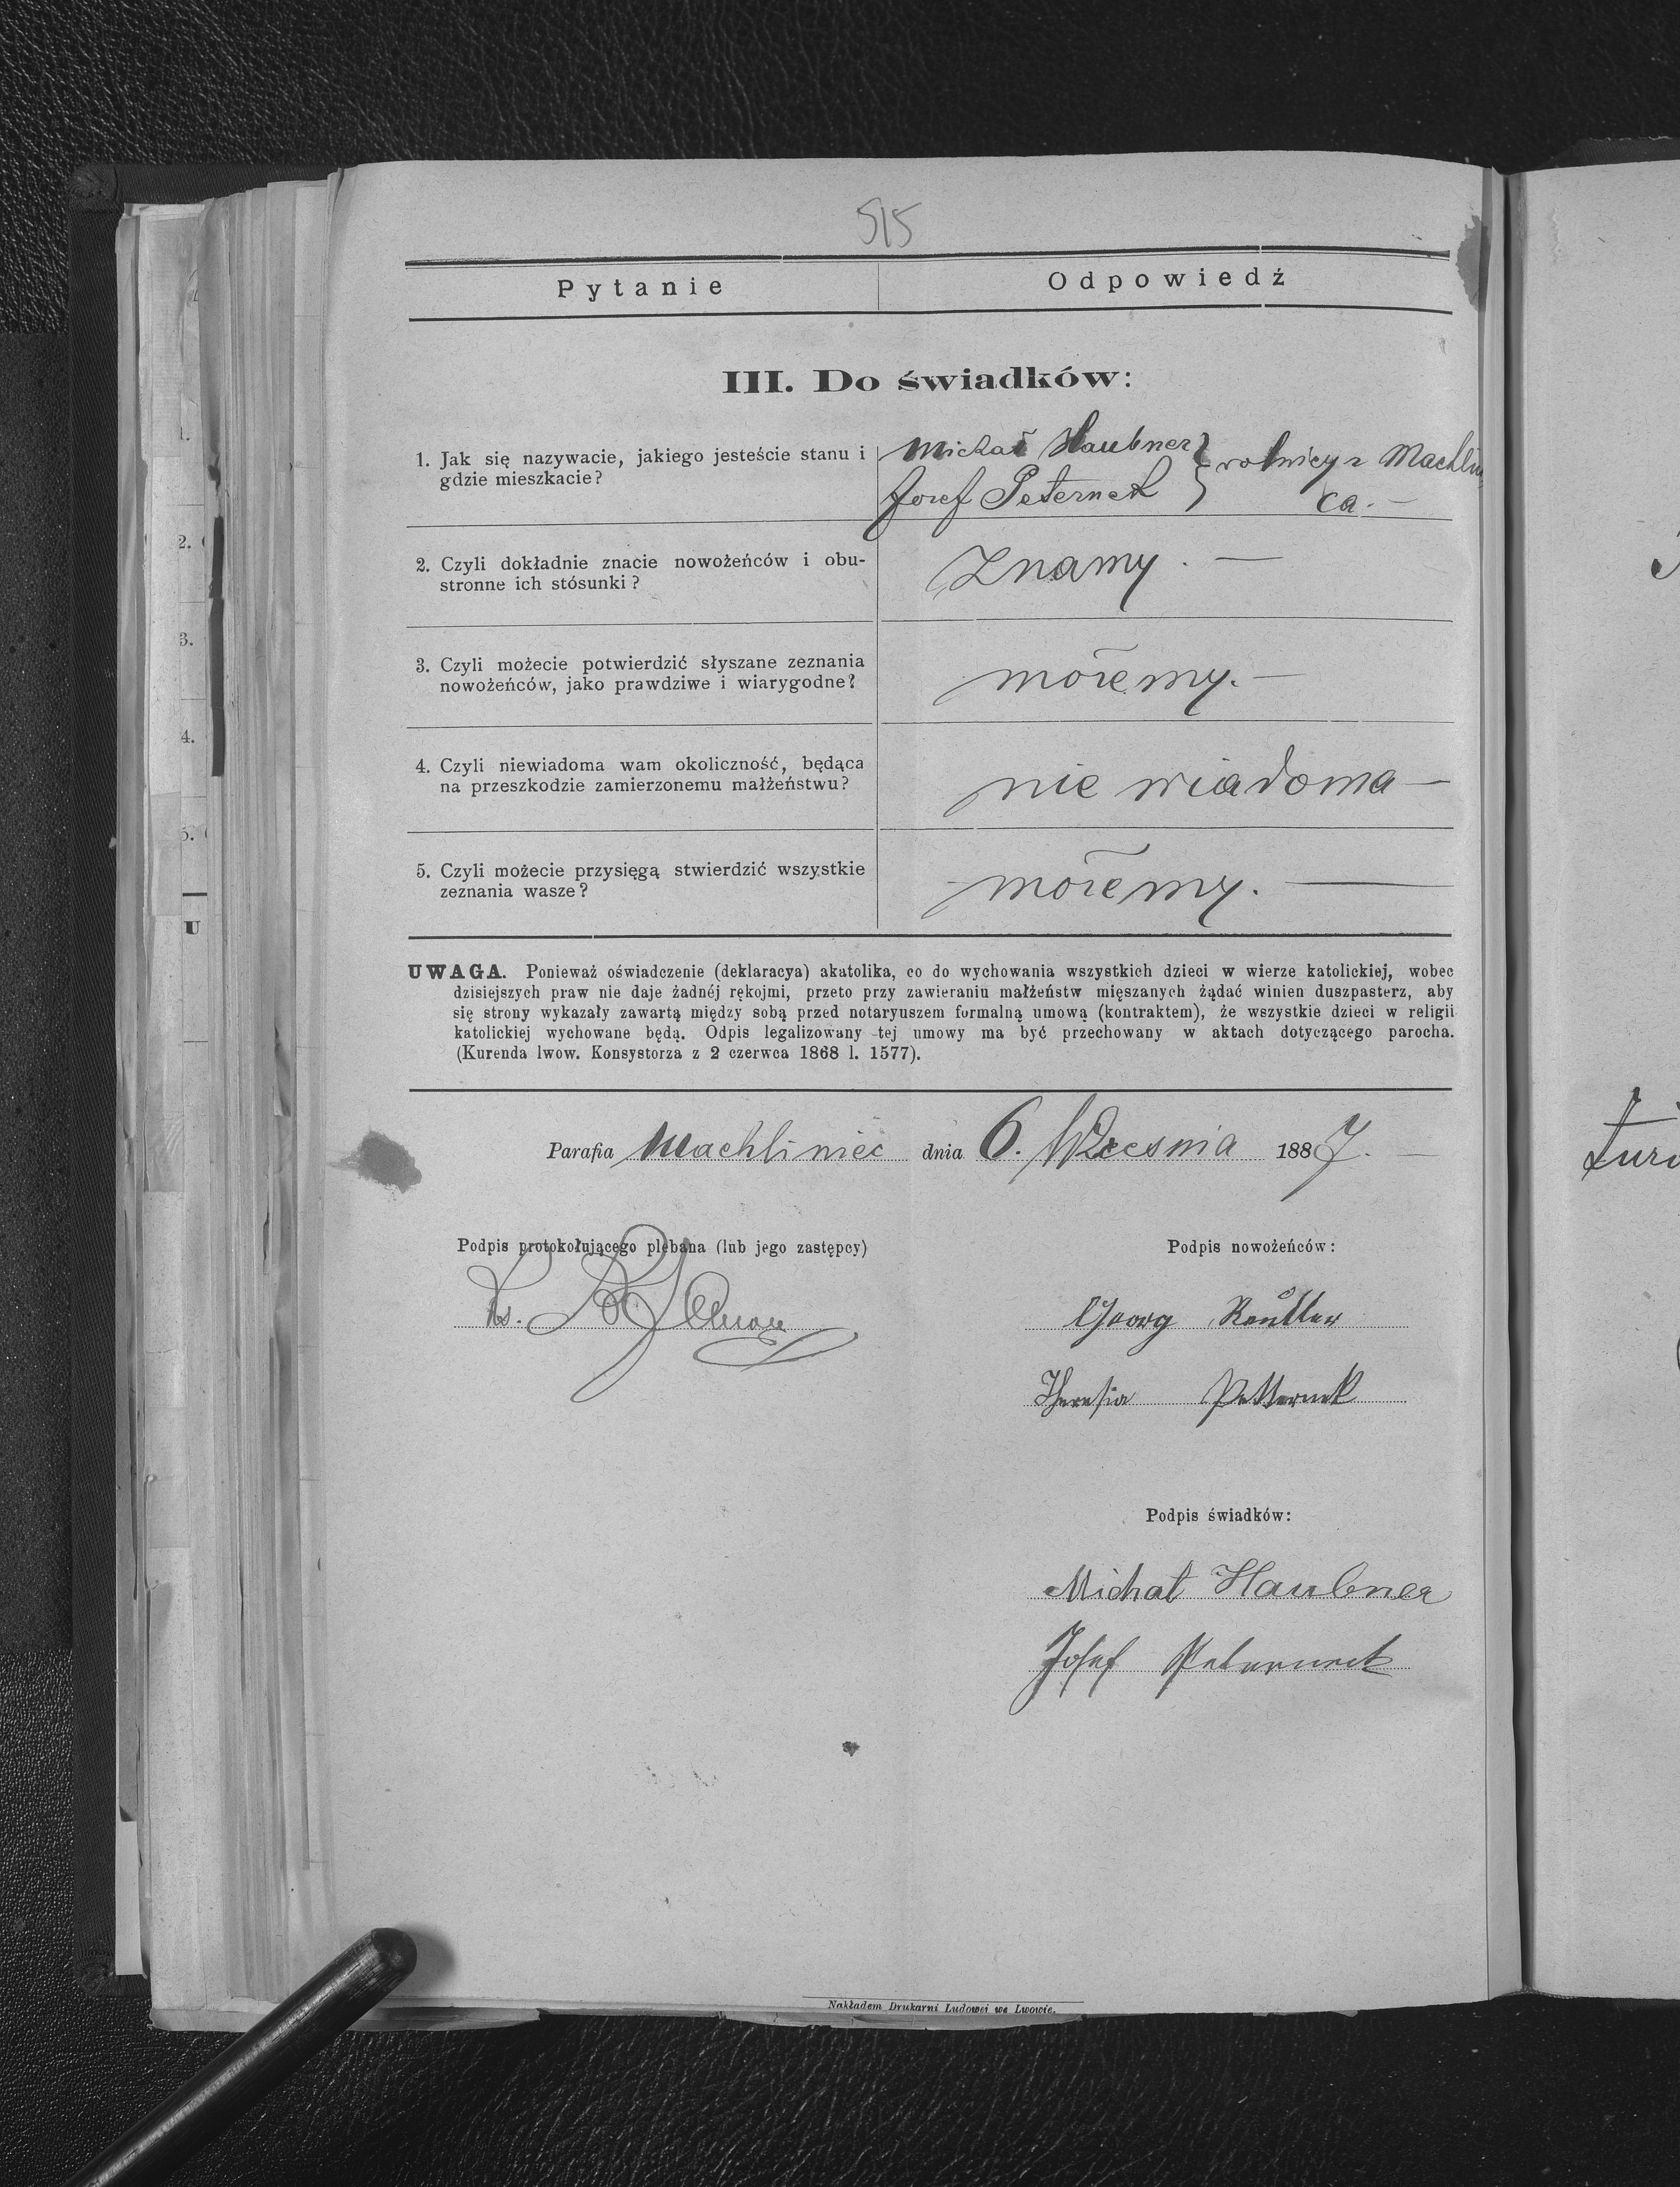 515
Pytanie Odpowiedź
III. Do świadków:
1. Jak się nazywacie, jakiego jesteście stanu i
gdzie mieszkacie?
Michał Haubner } rolnicy z Machlin
Jozef Peternek } ca. —
2. Czyli dokładnie znacie nowożeńców i obu-
stronne ich stósunki?
Znamy. —
3. Czyli możecie potwierdzić słyszane zeznania
nowożeńców, jako prawdziwe i wiarygodne?
możemy. —
4. Czyli niewiadoma wam okoliczność, będąca
na przeszkodzie zamierzonemu małżeństwu?
nie wiadoma —
5. Czyli możecie przysięgą stwierdzić wszystkie
zeznania wasze?
możemy. —
UWAGA. Ponieważ oświadczenie (deklaracya) akatolika, co do wychowania wszystkich dzieci w wierze katolickiej, wobec
dzisiejszych praw nie daje żadnéj rękojmi, przeto przy zawieraniu małżeństw mięszanych żądać winien duszpasterz, aby
się strony wykazały zawartą między sobą przed notaryuszem formalną umową (kontraktem), że wszystkie dzieci w religii
katolickiej wychowane będą. Odpis legalizowany tej umowy ma być przechowany w aktach dotyczącego parocha.
(Kurenda lwow. Konsystorza z 2 czerwca 1868 l. 1577).
Parafia Machliniec dnia 6. Września 1887. —
Podpis protokołującego plebana (lub jego zastępcy)
Ks.
Podpis nowożeńców:
Georg Reutter
Theresia Petternek
Podpis świadków:
Michał Haubner
Josef Peterneck
Nakładem Drukarni Ludowej we Lwowie.
2.
3.
4.
5.
U